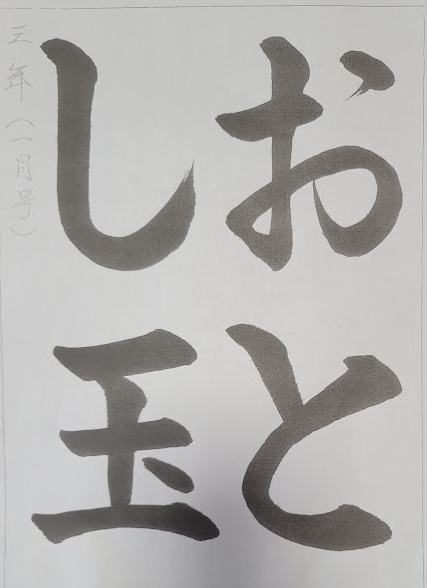 おと
し玉
三年(一月号)